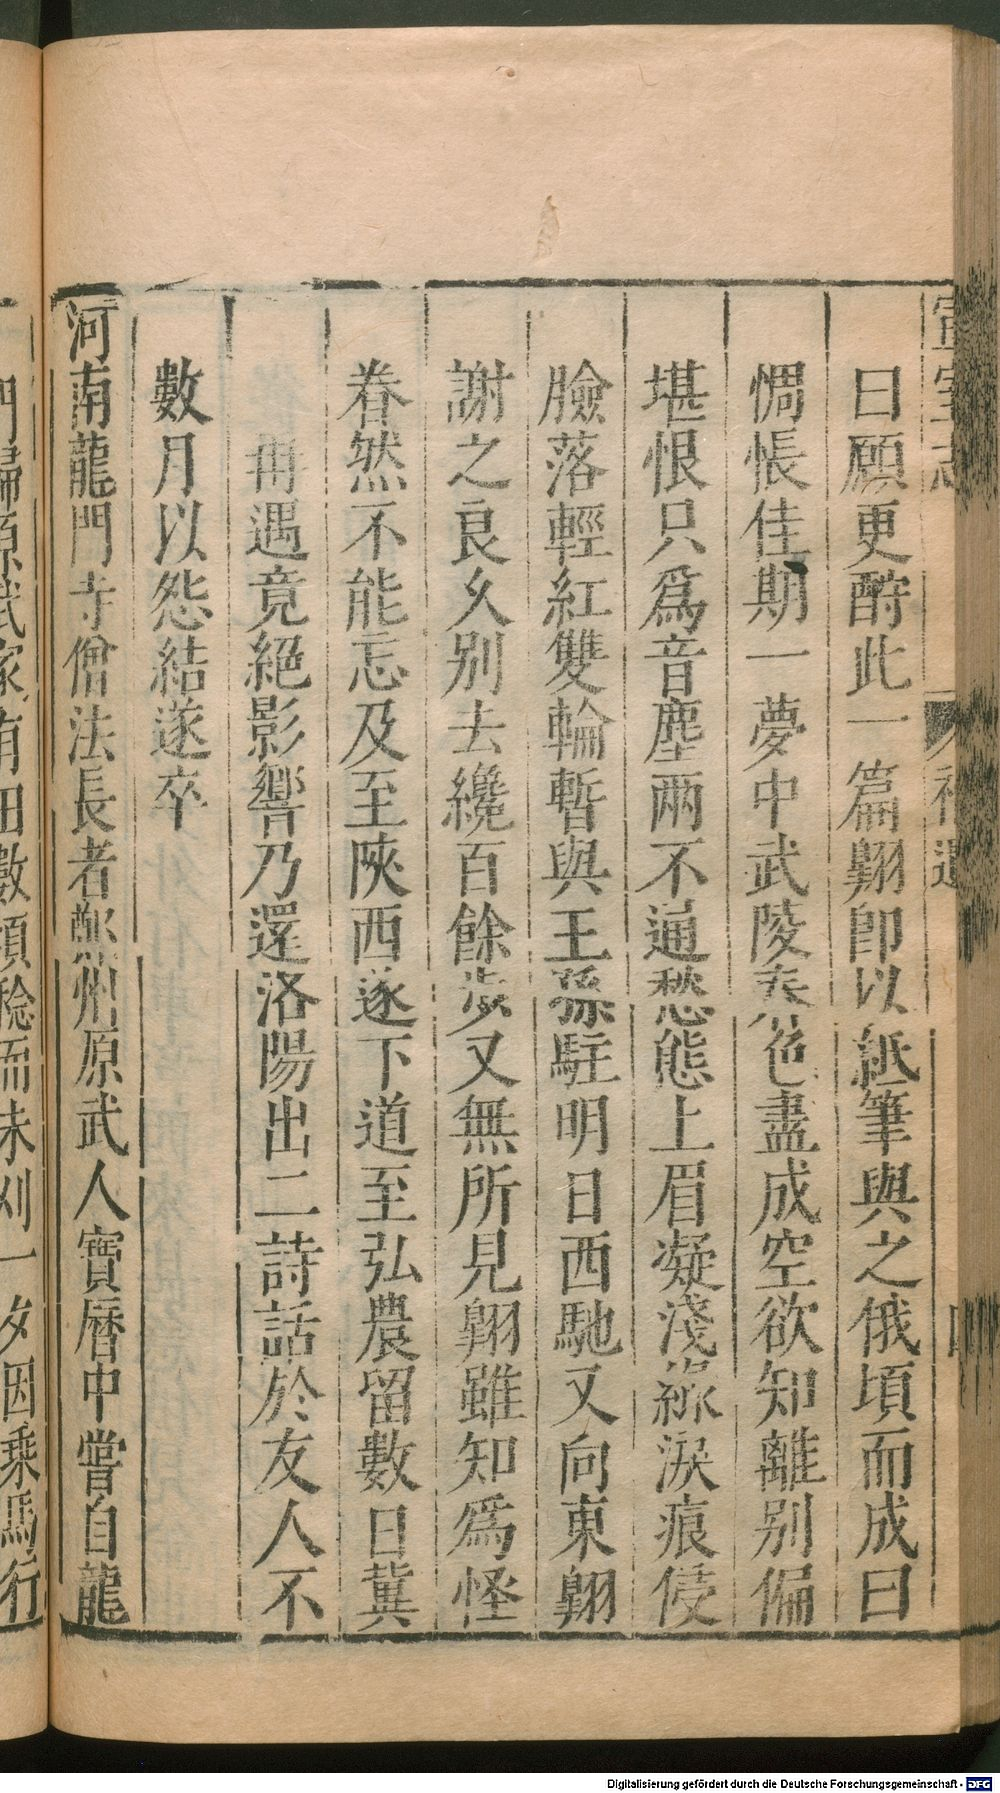 宣室志
補遺
四
曰願更酧此一篇翺即以紙筆與之俄頃而成曰
惆悵佳期一夢中武陵春色盡成空欲知離别偏
堪恨只爲音塵兩不通愁態上眉凝淺綠淚痕侵
臉落輕紅雙輪暫與王孫駐明日西馳又向東翺
謝之良乆别去纔百餘歩又無所見翺雖知爲怪
眷然不能忘及至陝西遂下道至弘農留數日冀
一再遇竟絕影響乃還洛陽出二詩話於友人不
數月以怨結遂卒
河南龍門寺僧法長者鄭州原武人寶曆中嘗自龍
門歸原武家有田數頃稔而未刈一夕因乘馬行
Digitalisierung gefördert durch die Deutsche Forschungsgemeinschaft - DFG